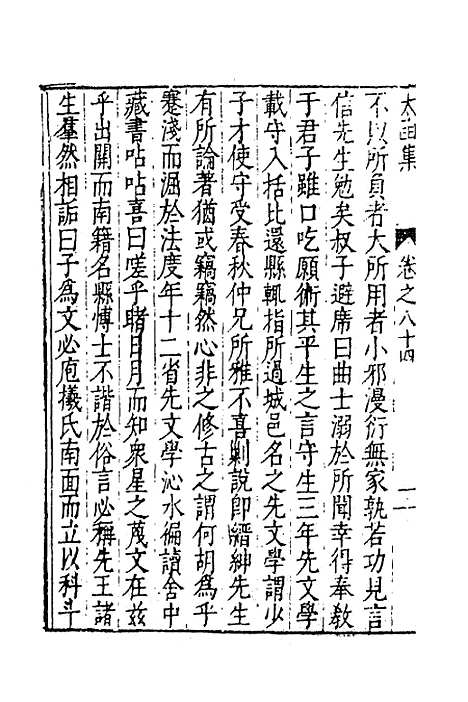 太函集
卷之八十四
二
不以所負者大所用者小邪漫衍無家孰若功見言
信先生勉矣叔子避席曰曲士溺於所聞幸得奉教
于君子雖口吃願術其平生之言守生三年先文學
載守入括比還縣輒指所過城邑名之先文學謂少
子才使守受春秋仲兄所雅不喜剿說即縉紳先生
有所論著猶或竊竊然心非之修古之謂何胡為乎
蹇淺而溷於法度年十二省先文學沁水徧讀舍中
藏書呫呫喜曰嗟乎睹日月而知衆星之蔑文在茲
乎出關而南籍名縣博士不諧於俗言必稱先王諸
生羣然相詬曰子為文必庖犧氏南面而立以科斗